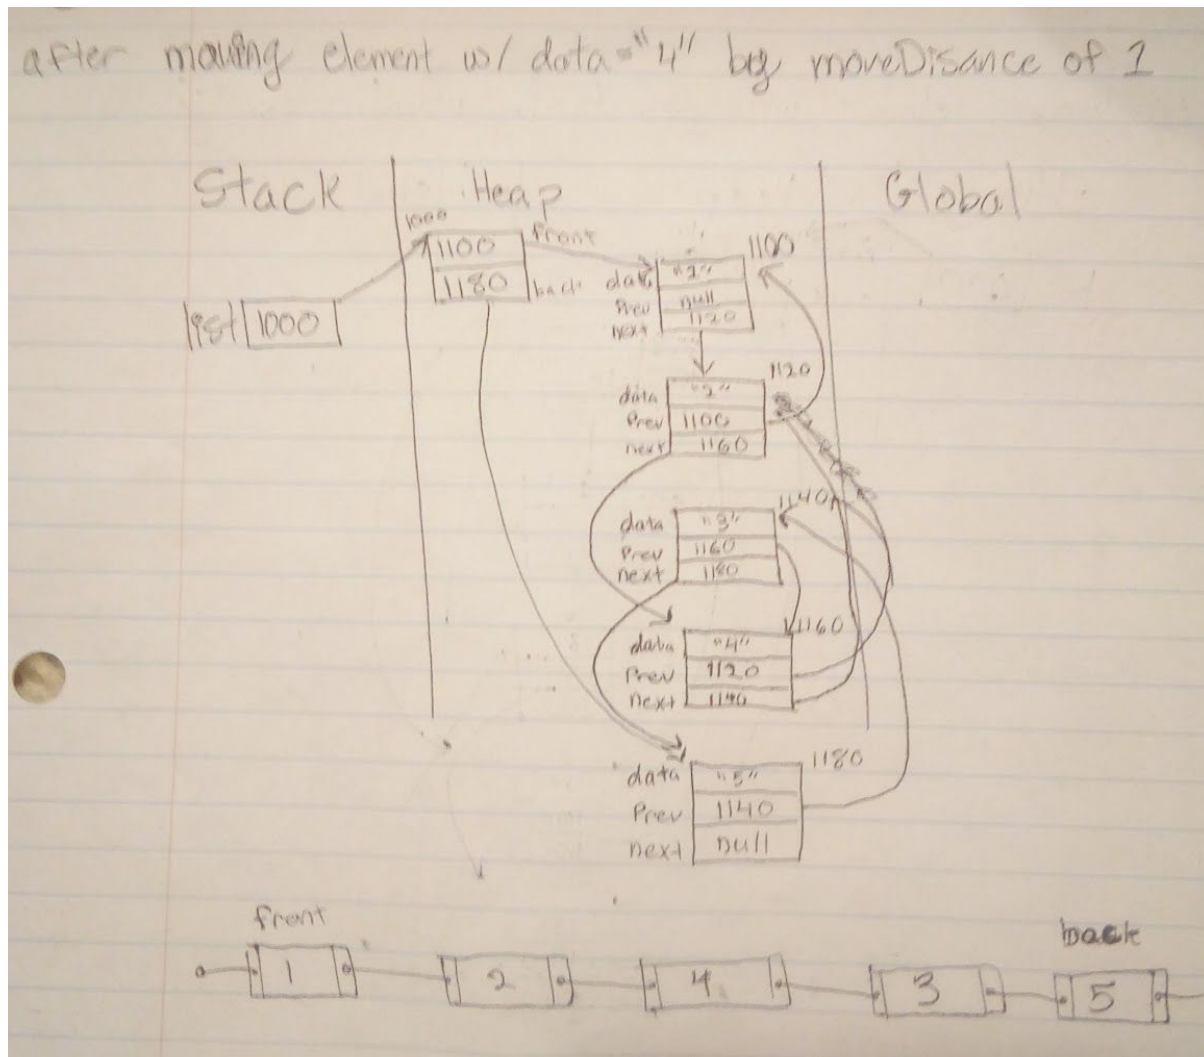 after moving element w/ data="4" by moveDisance of 1
Stack Heap Global
1000
1100 front
1180 back
list 1000
1100
data "1"
Prev null
next 1120
1120
data "2"
Prev 1100
next 1160
1140
data "3"
Prev 1160
next 1180
1160
data "4"
Prev 1120
next 1140
1180
data "5"
Prev 1140
next null
front back
1 2 4 3 5